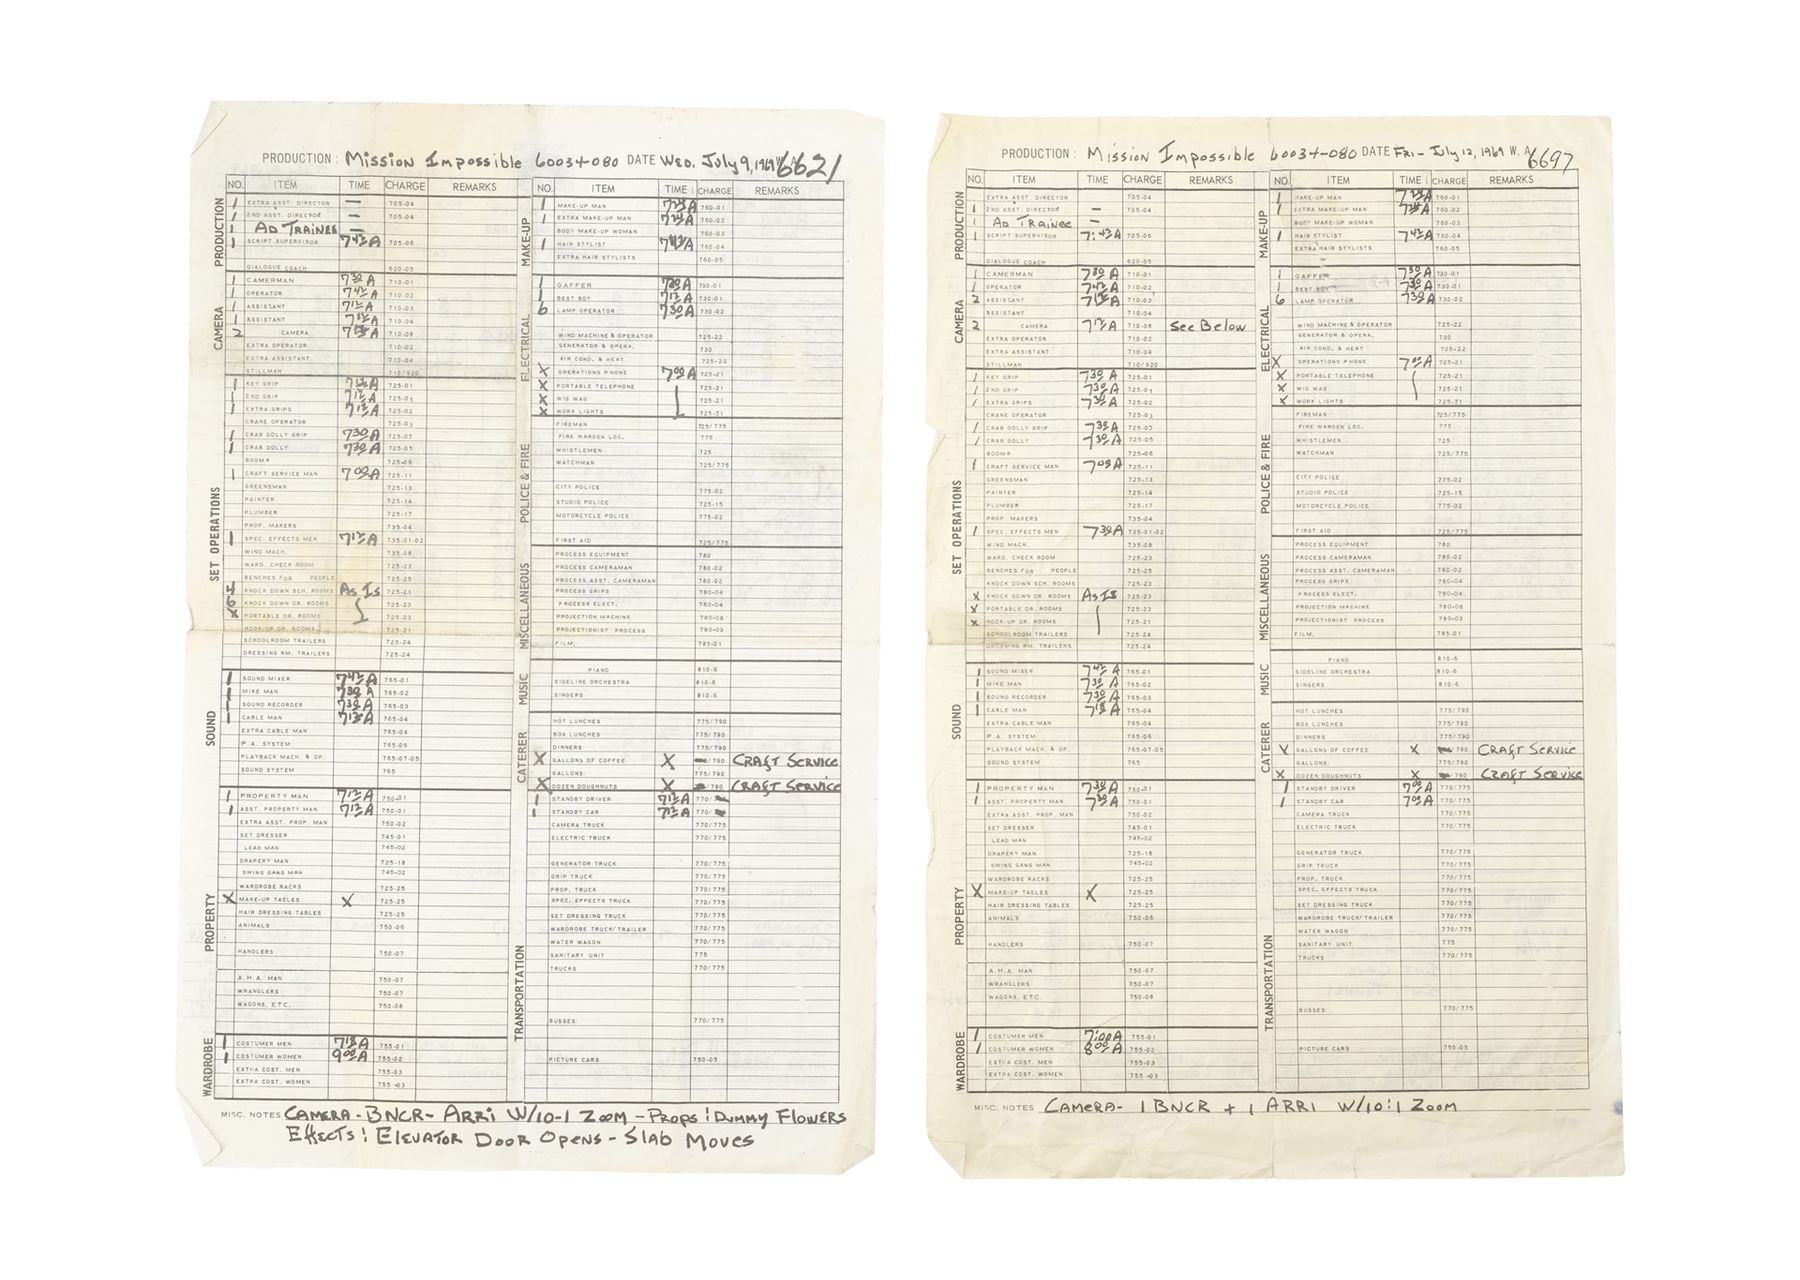 PRODUCTION: Mission Impossible 60034-080 DATE Wed. July 9, 1969 W. A. 6621
NO. ITEM TIME CHARGE REMARKS
PRODUCTION
1 EXTRA ASST. DIRECTOR — 705-04
1 2ND ASST. DIRECTOR — 705-04
1 AD TRAINEE —
1 SCRIPT SUPERVISOR 7 42 A 705-06
DIALOGUE COACH 620-05
CAMERA
1 CAMERMAN 7 30 A 710-01
1 OPERATOR 7 42 A 710-02
1 ASSISTANT 7 12 A 710-03
1 ASSISTANT 7 12 A 710-04
2 CAMERA 710-08
EXTRA OPERATOR 710-02
EXTRA ASSISTANT 710-04
STILLMAN 710/920
SET OPERATIONS
1 KEY GRIP 7 12 A 725-01
1 2ND GRIP 7 12 A 725-01
1 EXTRA GRIPS 7 12 A 725-02
CRANE OPERATOR 725-03
1 CRAB DOLLY GRIP 7 30 A 725-03
1 CRAB DOLLY 7 30 A 725-05
BOOM# 725-06
1 CRAFT SERVICE MAN 7 00 A 725-11
GREENSMAN 725-13
PAINTER 725-14
PLUMBER 725-17
PROP. MAKERS 735-04
1 SPEC. EFFECTS MEN 7 12 A 735-01-02
WIND MACH. 735-08
WARD. CHECK ROOM 725-23
BENCHES FOR PEOPLE 725-25
4 KNOCK DOWN SCH. ROOMS AS IS 725-23
6 KNOCK DOWN DR. ROOMS 725-23
X PORTABLE DR. ROOMS 725-23
HOOK-UP DR. ROOMS 725-21
SCHOOLROOM TRAILERS 725-24
DRESSING RM. TRAILERS 725-24
SOUND
1 SOUND MIXER 7 42 A 765-01
1 MIKE MAN 7 30 A 765-02
1 SOUND RECORDER 7 30 A 765-03
1 CABLE MAN 765-04
EXTRA CABLE MAN 765-04
P.A. SYSTEM 765-06
PLAYBACK MACH. & OP. 765-07-05
SOUND SYSTEM 765
PROPERTY
1 PROPERTY MAN 7 12 A 750-01
1 ASST. PROPERTY MAN 7 12 A 750-01
EXTRA ASST. PROP. MAN 750-02
SET DRESSER 745-01
LEAD MAN 745-02
DRAPERY MAN 725-18
SWING GANG MAN 745-02
WARDROBE RACKS 725-25
X MAKE-UP TABLES X 725-25
HAIR DRESSING TABLES 725-25
ANIMALS 750-06
HANDLERS 750-07
A.H.A. MAN 750-07
WRANGLERS 750-07
WAGONS, ETC. 750-08
WARDROBE
1 COSTUMER MEN 7 18 A 755-01
1 COSTUMER WOMEN 9 00 A 755-02
EXTRA COST. MEN 755-03
EXTRA COST. WOMEN 755-03
NO. ITEM TIME CHARGE REMARKS
MAKE-UP
1 MAKE-UP MAN 760-01
1 EXTRA MAKE-UP MAN 760-02
BODY MAKE-UP WOMAN 760-03
1 HAIR STYLIST 760-04
EXTRA HAIR STYLISTS 760-05
ELECTRICAL
1 GAFFER 730-01
1 BEST BOY 7 12 A 730-01
6 LAMP OPERATOR 7 30 A 730-02
WIND MACHINE & OPERATOR 725-22
GENERATOR & OPERA. 730
AIR COND. & HEAT 725-22
X OPERATIONS PHONE 7 00 A 725-21
X PORTABLE TELEPHONE 725-21
X WIG WAG 725-21
X WORK LIGHTS 725-21
POLICE & FIRE
FIREMAN 725/775
FIRE WARDEN LOC. 775
WHISTLEMEN 725
WATCHMAN 725/775
CITY POLICE 775-02
STUDIO POLICE 725-15
MOTORCYCLE POLICE 775-02
FIRST AID 725/775
MISCELLANEOUS
PROCESS EQUIPMENT 780
PROCESS CAMERAMAN 780-02
PROCESS ASST. CAMERAMAN 780-02
PROCESS GRIPS 780-04
PROCESS ELECT. 780-04
PROJECTION MACHINE 780-08
PROJECTIONIST PROCESS 780-03
FILM: 785-01
MUSIC
PIANO 810-6
SIDELINE ORCHESTRA 810-6
SINGERS 810-6
CATERER
HOT LUNCHES 775/790
BOX LUNCHES 775/790
DINNERS 775/790
X GALLONS OF COFFEE X /790 CRAFT SERVICE
GALLONS: 775/790
X DOZEN DOUGHNUTS X /790 CRAFT SERVICE
TRANSPORTATION
1 STANDBY DRIVER 7 12 A 770/
1 STANDBY CAR 7 12 A 770/
CAMERA TRUCK 770/775
ELECTRIC TRUCK 770/775
GENERATOR TRUCK 770/775
GRIP TRUCK 770/775
PROP. TRUCK 770/775
SPEC. EFFECTS TRUCK 770/775
SET DRESSING TRUCK 770/775
WARDROBE TRUCK/TRAILER 770/775
WATER WAGON 770/775
SANITARY UNIT 775
TRUCKS 770/775
BUSSES: 770/775
PICTURE CARS 750-05
MISC. NOTES CAMERA - BNCR - ARRI W/10-1 ZOOM - PROPS: DUMMY FLOWERS
EFFECTS: ELEVATOR DOOR OPENS - SLAB MOVES
PRODUCTION: Mission Impossible 60034-080 DATE FRI - July 12, 1969 W. A. 6697
NO. ITEM TIME CHARGE REMARKS
PRODUCTION
EXTRA ASST. DIRECTOR 705-04
1 2ND ASST. DIRECTOR — 705-04
1 AD TRAINEE —
1 SCRIPT SUPERVISOR 7:42 A 705-06
DIALOGUE COACH 620-05
CAMERA
1 CAMERMAN 7 30 A 710-01
1 OPERATOR 7 42 A 710-02
2 ASSISTANT 7 12 A 710-03
ASSISTANT 710-04
2 CAMERA 7 12 A 710-08 See Below
EXTRA OPERATOR 710-02
EXTRA ASSISTANT 710-04
STILLMAN 710/920
SET OPERATIONS
1 KEY GRIP 7 30 A 725-01
1 2ND GRIP 7 30 A 725-01
1 EXTRA GRIPS 7 30 A 725-02
CRANE OPERATOR 725-03
1 CRAB DOLLY GRIP 7 30 A 725-03
1 CRAB DOLLY 7 30 A 725-05
BOOM# 725-06
1 CRAFT SERVICE MAN 7 00 A 725-11
GREENSMAN 725-13
PAINTER 725-14
PLUMBER 725-17
PROP. MAKERS 735-04
1 SPEC. EFFECTS MEN 7 30 A 735-01-02
WIND MACH. 735-08
WARD. CHECK ROOM 725-23
BENCHES FOR PEOPLE 725-25
KNOCK DOWN SCH. ROOMS 725-23
X KNOCK DOWN DR. ROOMS AS IS 725-23
X PORTABLE DR. ROOMS 725-23
X HOOK-UP DR. ROOMS 725-21
SCHOOLROOM TRAILERS 725-24
DRESSING RM. TRAILERS 725-24
SOUND
1 SOUND MIXER 7 42 A 765-01
1 MIKE MAN 7 30 A 765-02
1 SOUND RECORDER 7 30 A 765-03
1 CABLE MAN 7 18 A 765-04
EXTRA CABLE MAN 765-04
P.A. SYSTEM 765-06
PLAYBACK MACH. & OP. 765-07-05
SOUND SYSTEM 765
PROPERTY
1 PROPERTY MAN 7 30 A 750-01
1 ASST. PROPERTY MAN 7 30 A 750-01
EXTRA ASST. PROP. MAN 750-02
SET DRESSER 745-01
LEAD MAN 745-02
DRAPERY MAN 725-18
SWING GANG MAN 745-02
WARDROBE RACKS 725-25
X MAKE-UP TABLES X 725-25
HAIR DRESSING TABLES 725-25
ANIMALS 750-06
HANDLERS 750-07
A.H.A. MAN 750-07
WRANGLERS 750-07
WAGONS, ETC. 750-08
WARDROBE
1 COSTUMER MEN 7:00 A 755-01
1 COSTUMER WOMEN 8 00 A 755-02
EXTRA COST. MEN 755-03
EXTRA COST. WOMEN 755-03
NO. ITEM TIME CHARGE REMARKS
MAKE-UP
1 MAKE-UP MAN 760-01
1 EXTRA MAKE-UP MAN 760-02
BODY MAKE-UP WOMAN 760-03
1 HAIR STYLIST 7 42 A 760-04
EXTRA HAIR STYLISTS 760-05
ELECTRICAL
1 GAFFER 7 30 A 730-01
1 BEST BOY 7 30 A
6 LAMP OPERATOR 7 30 A 730-02
WIND MACHINE & OPERATOR 725-22
GENERATOR & OPERA. 730
AIR COND. & HEAT 725-22
X OPERATIONS PHONE 7 00 A 725-21
X PORTABLE TELEPHONE 725-21
X WIG WAG 725-21
X WORK LIGHTS 725-21
POLICE & FIRE
FIREMAN 725/775
FIRE WARDEN LOC. 775
WHISTLEMEN 725
WATCHMAN 725/775
CITY POLICE 775-02
STUDIO POLICE 725-15
MOTORCYCLE POLICE 775-02
FIRST AID 725/775
MISCELLANEOUS
PROCESS EQUIPMENT 780
PROCESS CAMERAMAN 780-02
PROCESS ASST. CAMERAMAN 780-02
PROCESS GRIPS 780-04
PROCESS ELECT. 780-04
PROJECTION MACHINE 780-08
PROJECTIONIST PROCESS 780-03
FILM: 785-01
MUSIC
PIANO 810-6
SIDELINE ORCHESTRA 810-6
SINGERS 810-6
CATERER
HOT LUNCHES 775/790
BOX LUNCHES 775/790
DINNERS 775/790
X GALLONS OF COFFEE X 790 CRAFT SERVICE
GALLONS: 775/790
X DOZEN DOUGHNUTS X 790 CRAFT SERVICE
TRANSPORTATION
1 STANDBY DRIVER 7 00 A 770/775
1 STANDBY CAR 7 00 A 770/775
CAMERA TRUCK 770/775
ELECTRIC TRUCK 770/775
GENERATOR TRUCK 770/775
GRIP TRUCK 770/775
PROP. TRUCK 770/775
SPEC. EFFECTS TRUCK 770/775
SET DRESSING TRUCK 770/775
WARDROBE TRUCK/TRAILER 770/775
WATER WAGON 770/775
SANITARY UNIT 775
TRUCKS 770/775
BUSSES: 770/775
PICTURE CARS 750-05
MISC. NOTES CAMERA - 1 BNCR + 1 ARRI W/10:1 ZOOM